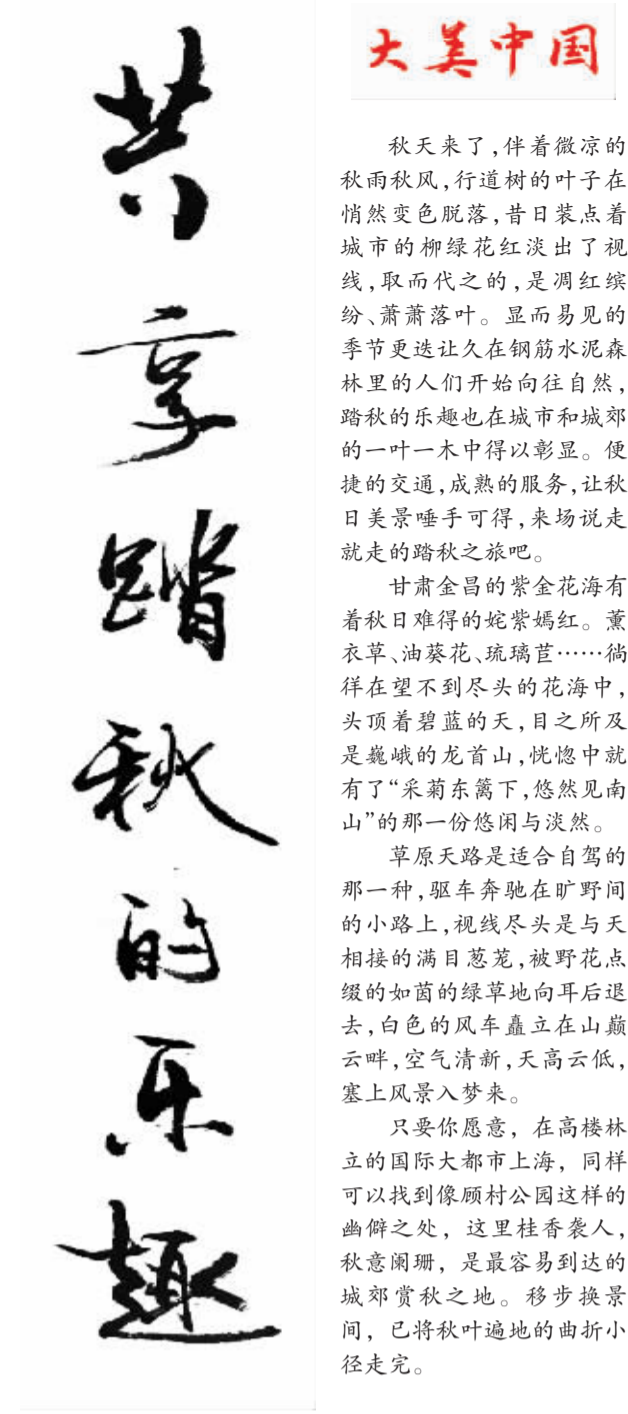 共享踏秋的乐趣
大美中国
秋天来了,伴着微凉的
秋雨秋风,行道树的叶子在
悄然变色脱落,昔日装点着
城市的柳绿花红淡出了视
线,取而代之的,是凋红缤
纷、萧萧落叶。显而易见的
季节更迭让久在钢筋水泥森
林里的人们开始向往自然,
踏秋的乐趣也在城市和城郊
的一叶一木中得以彰显。便
捷的交通,成熟的服务,让秋
日美景唾手可得,来场说走
就走的踏秋之旅吧。
甘肃金昌的紫金花海有
着秋日难得的姹紫嫣红。薰
衣草、油葵花、琉璃苣……徜
徉在望不到尽头的花海中,
头顶着碧蓝的天,目之所及
是巍峨的龙首山,恍惚中就
有了“采菊东篱下,悠然见南
山”的那一份悠闲与淡然。
草原天路是适合自驾的
那一种,驱车奔驰在旷野间
的小路上,视线尽头是与天
相接的满目葱茏,被野花点
缀的如茵的绿草地向耳后退
去,白色的风车矗立在山巅
云畔,空气清新,天高云低,
塞上风景入梦来。
只要你愿意，在高楼林
立的国际大都市上海，同样
可以找到像顾村公园这样的
幽僻之处，这里桂香袭人，
秋意阑珊，是最容易到达的
城郊赏秋之地。移步换景
间，已将秋叶遍地的曲折小
径走完。